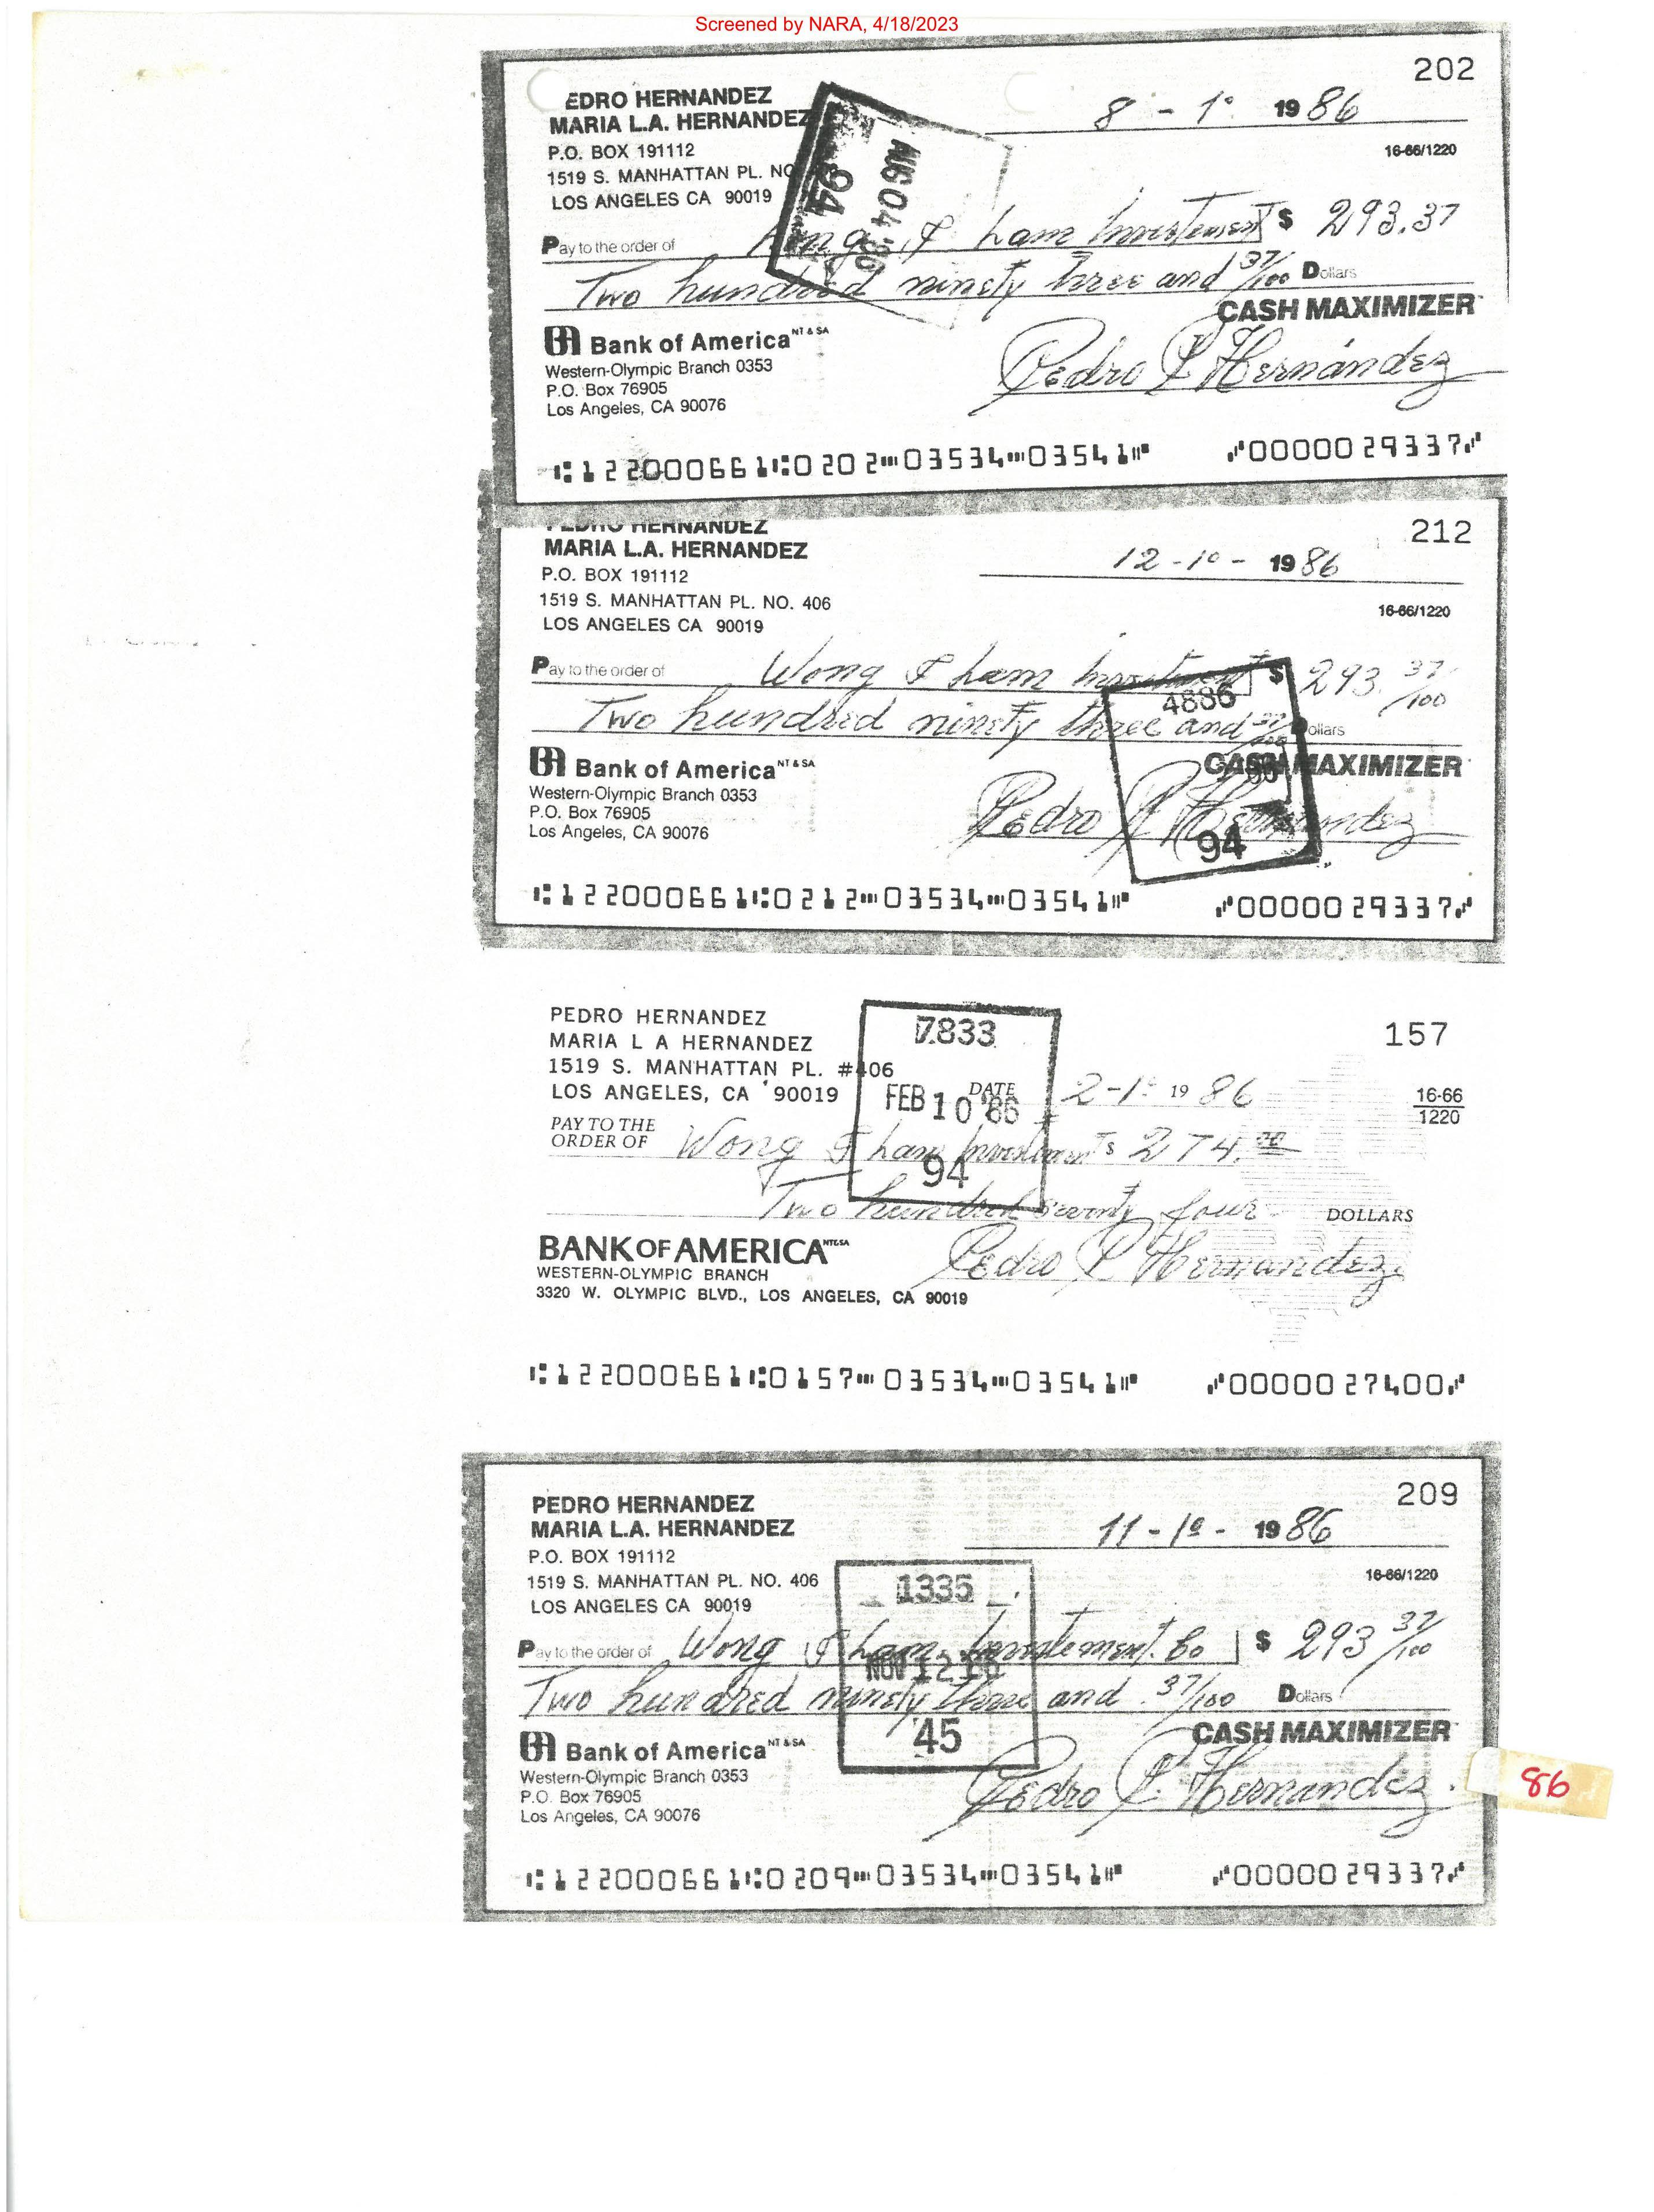 Screened by NARA, 4/18/2023
202
EDRO HERNANDEZ
MARIA L.A. HERNANDEZ
8 - 1º 1986
P.O. BOX 191112
16-66/1220
1519 S. MANHATTAN PL. NO
LOS ANGELES CA 90019
94
AUG 04 '86
Pay to the order of & Lam Investement $ 293.37
Two hundred ninety three and 37/100 Dollars
CASH MAXIMIZER
Bank of America NT & SA
Western-Olympic Branch 0353
P.O. Box 76905
Los Angeles, CA 90076
Pedro P Hernández
⑆122000661⑆0202⑉03534⑉03541⑈ ⑇0000029337⑇
PEDRO HERNANDEZ
212
MARIA L.A. HERNANDEZ
12-1º- 1986
P.O. BOX 191112
1519 S. MANHATTAN PL. NO. 406
16-66/1220
LOS ANGELES CA 90019
Pay to the order of Wong & Lam Investment $ 293. 37/100
4886
Two hundred ninety three and 37/100 Dollars
CASH MAXIMIZER
Bank of America NT & SA
Western-Olympic Branch 0353
P.O. Box 76905
Los Angeles, CA 90076
Pedro P Hernandez
94
⑆122000661⑆0212⑉03534⑉03541⑈ ⑇0000029337⑇
PEDRO HERNANDEZ
7833
157
MARIA L A HERNANDEZ
1519 S. MANHATTAN PL. #406
LOS ANGELES, CA 90019
FEB 10 '86
DATE 2-1º 1986
16-66
1220
PAY TO THE
ORDER OF Wong & Lam Investment $ 274.00
94
Two hundred seventy four DOLLARS
BANK OF AMERICA NT&SA
WESTERN-OLYMPIC BRANCH
3320 W. OLYMPIC BLVD., LOS ANGELES, CA 90019
Pedro P Hernandez
⑆122000661⑆0157⑉03534⑉03541⑈ ⑇0000027400⑇
209
PEDRO HERNANDEZ
MARIA L.A. HERNANDEZ
11-1º- 1986
P.O. BOX 191112
1519 S. MANHATTAN PL. NO. 406
16-66/1220
LOS ANGELES CA 90019
1335
Pay to the order of Wong & Lam Investement. Co $ 293 37/100
NOV 12
Two hundred ninety three and 37/100 Dollars
45
CASH MAXIMIZER
Bank of America NT & SA
Western-Olympic Branch 0353
P.O. Box 76905
Los Angeles, CA 90076
Pedro P. Hernandez
86
⑆122000661⑆0209⑉03534⑉03541⑈ ⑇0000029337⑇